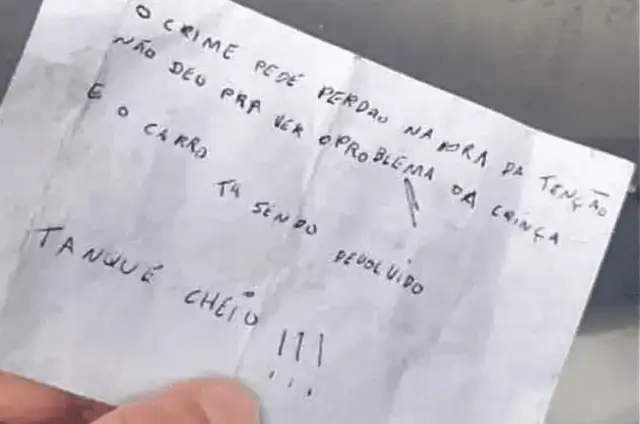 O CRIME PEDE PERDÃO NA ORA DA TENÇÃO
NÃO DEU PRA VER O PROBLEMA DA CRINÇA
E O CARRO TA SENDO DEVOLVIDO
TANQUE CHEIO !!!